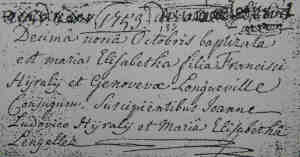 1753
Decimâ nonâ Octobris baptizata
est maria Elisabetha filia Francisci
Hyraly et Genovevæ Longueville
Conjugum. Suscipientibus Joanne
Ludovico Hyraly et Mariâ Elisabetha
Lengellez